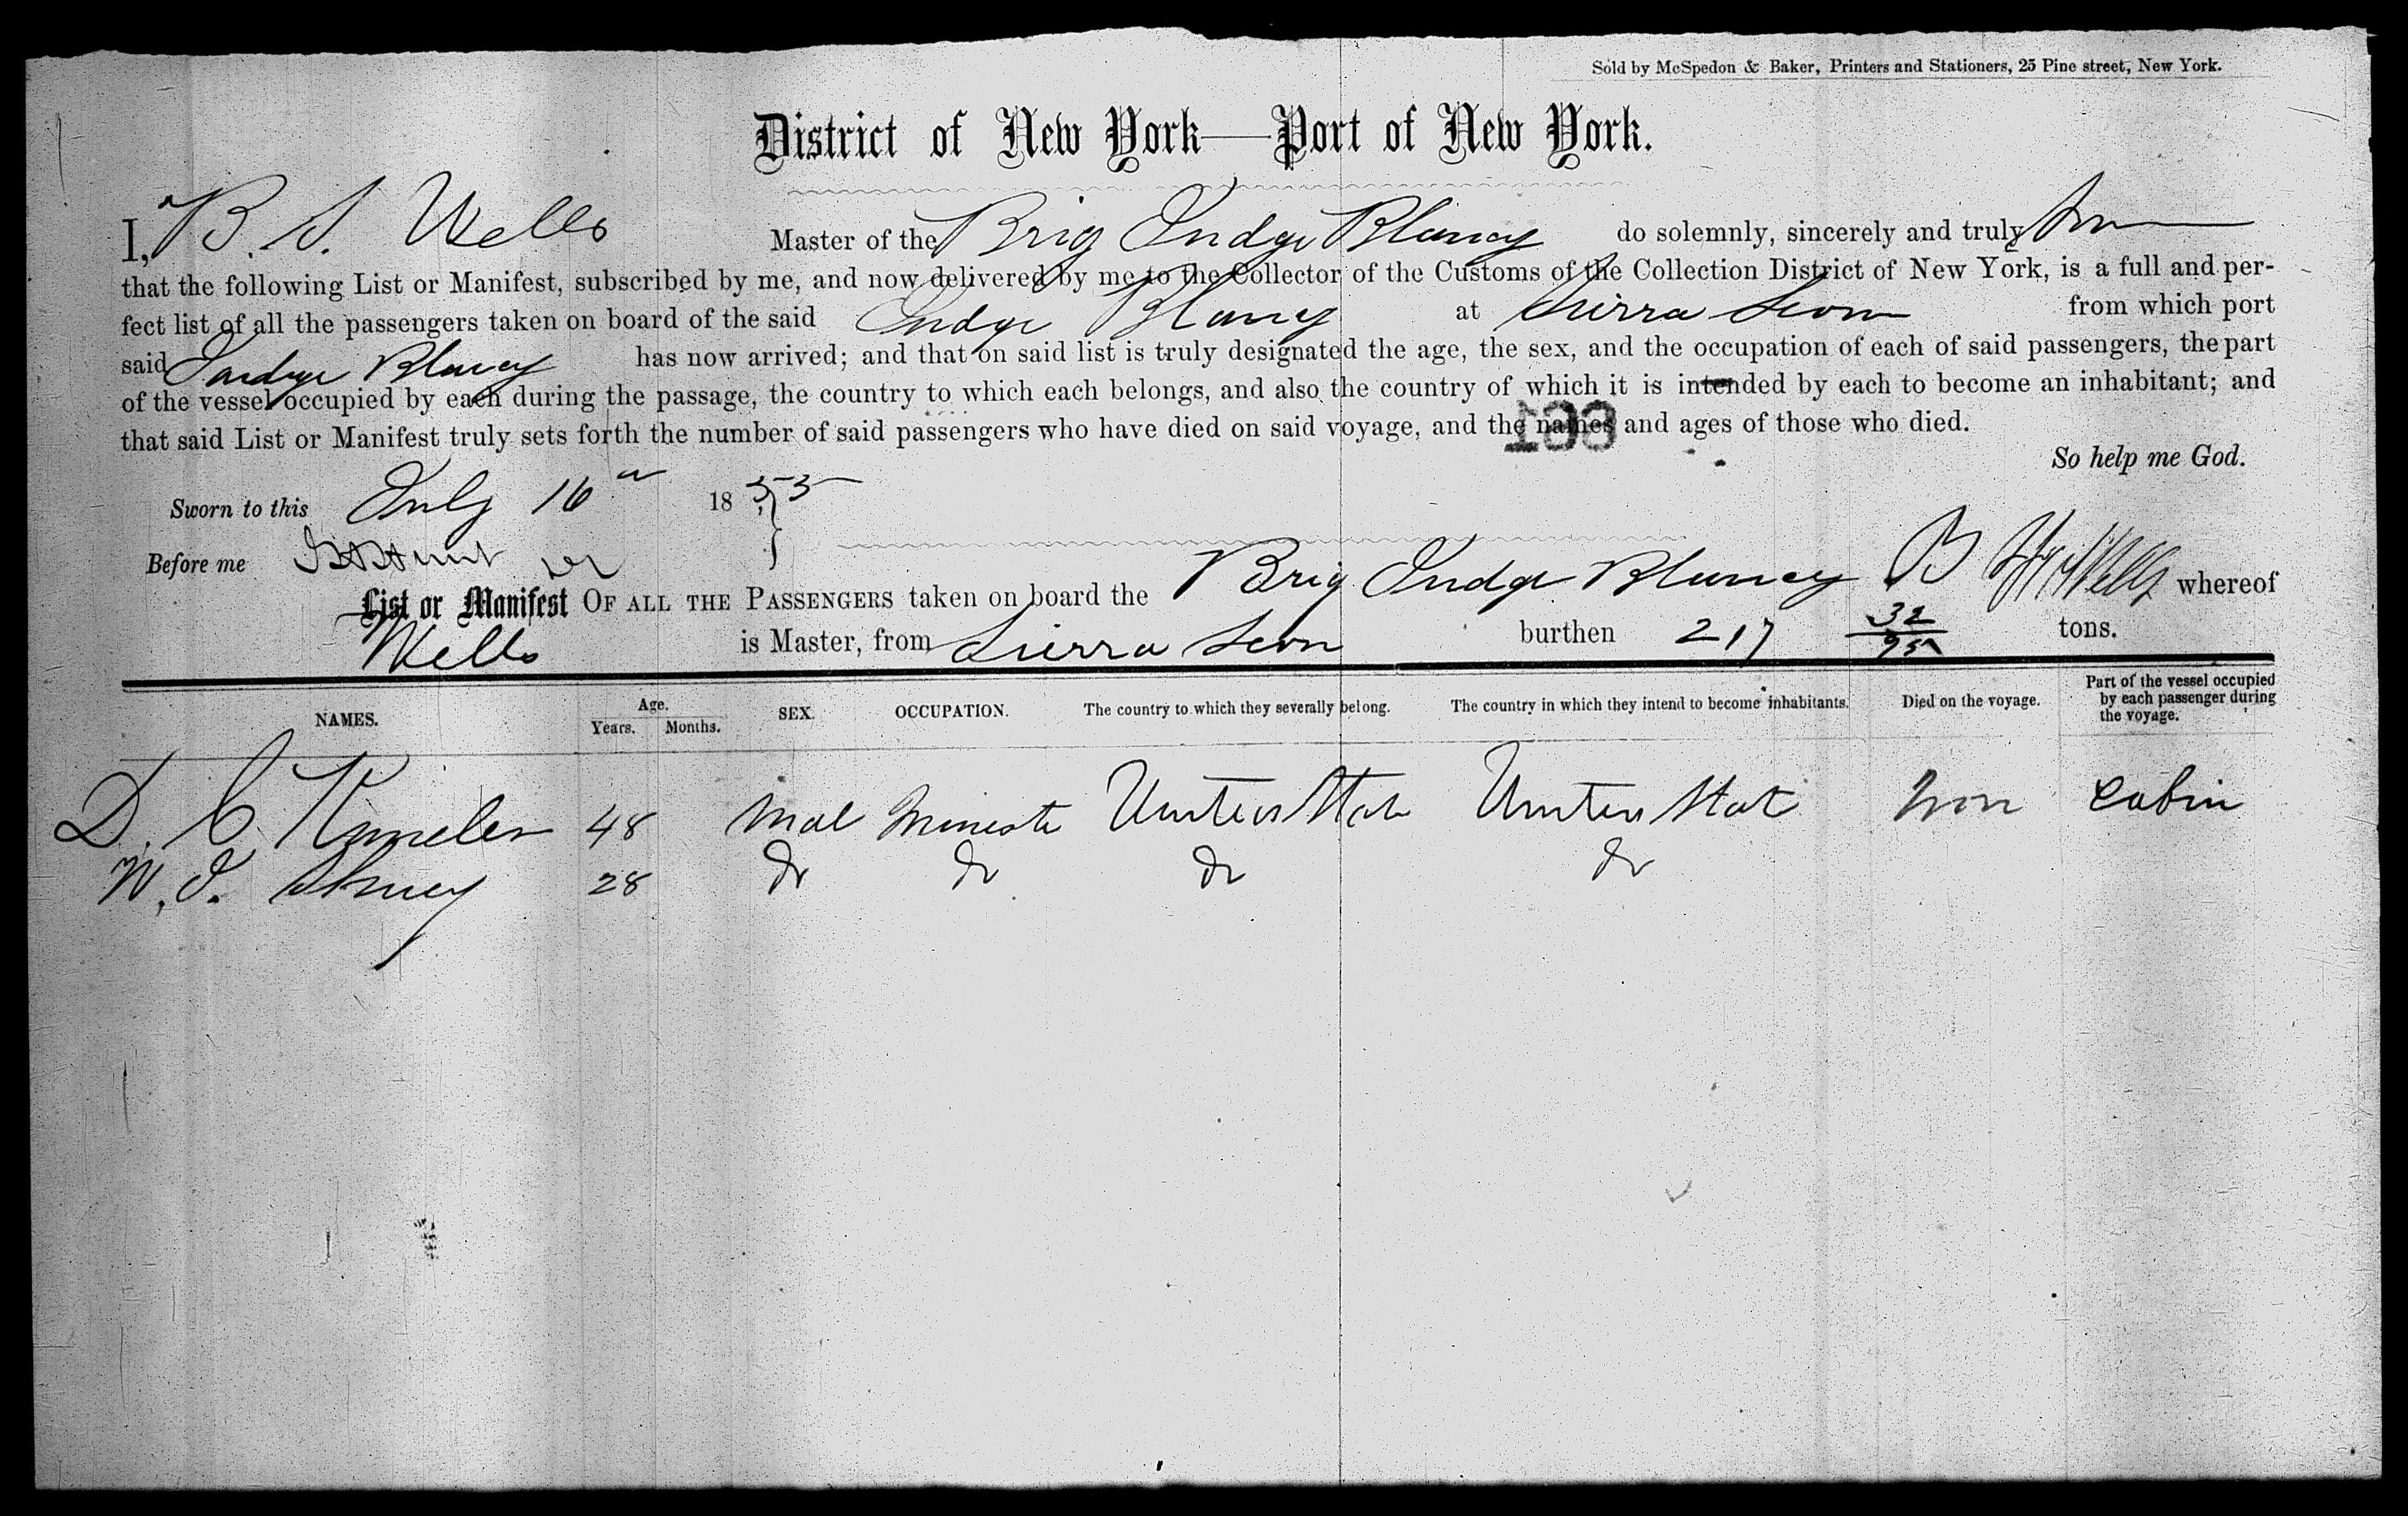 Sold by McSpedon & Baker, Printers and Stationers, 25 Pine street, New York.
District of New York—Port of New York.
I, B. S. Wells Master of the Brig Judge Blaney do solemnly, sincerely and truly
that the following List or Manifest, subscribed by me, and now delivered by me to the Collector of the Customs of the Collection District of New York, is a full and per-
fect list of all the passengers taken on board of the said Judge Blaney at Sierra Leon from which port
said Judge Blaney has now arrived; and that on said list is truly designated the age, the sex, and the occupation of each of said passengers, the part
of the vessel occupied by each during the passage, the country to which each belongs, and also the country of which it is intended by each to become an inhabitant; and
that said List or Manifest truly sets forth the number of said passengers who have died on said voyage, and the names and ages of those who died.
So help me God.
Sworn to this July 16 1855
Before me
List or Manifest OF ALL THE PASSENGERS taken on board the Brig Judge Blaney B Wells whereof
Wells is Master, from Sierra Leon burthen 217 32/95 tons.
NAMES. Age. Years. Months. SEX. OCCUPATION. The country to which they severally belong. The country in which they intend to become inhabitants. Died on the voyage. Part of the vessel occupied by each passenger during the voyage.
D. C. Kumeler 48 Mal Ministe United Stat United Stat Non Cabin
W. J. Shuey 28 Do Do Do Do